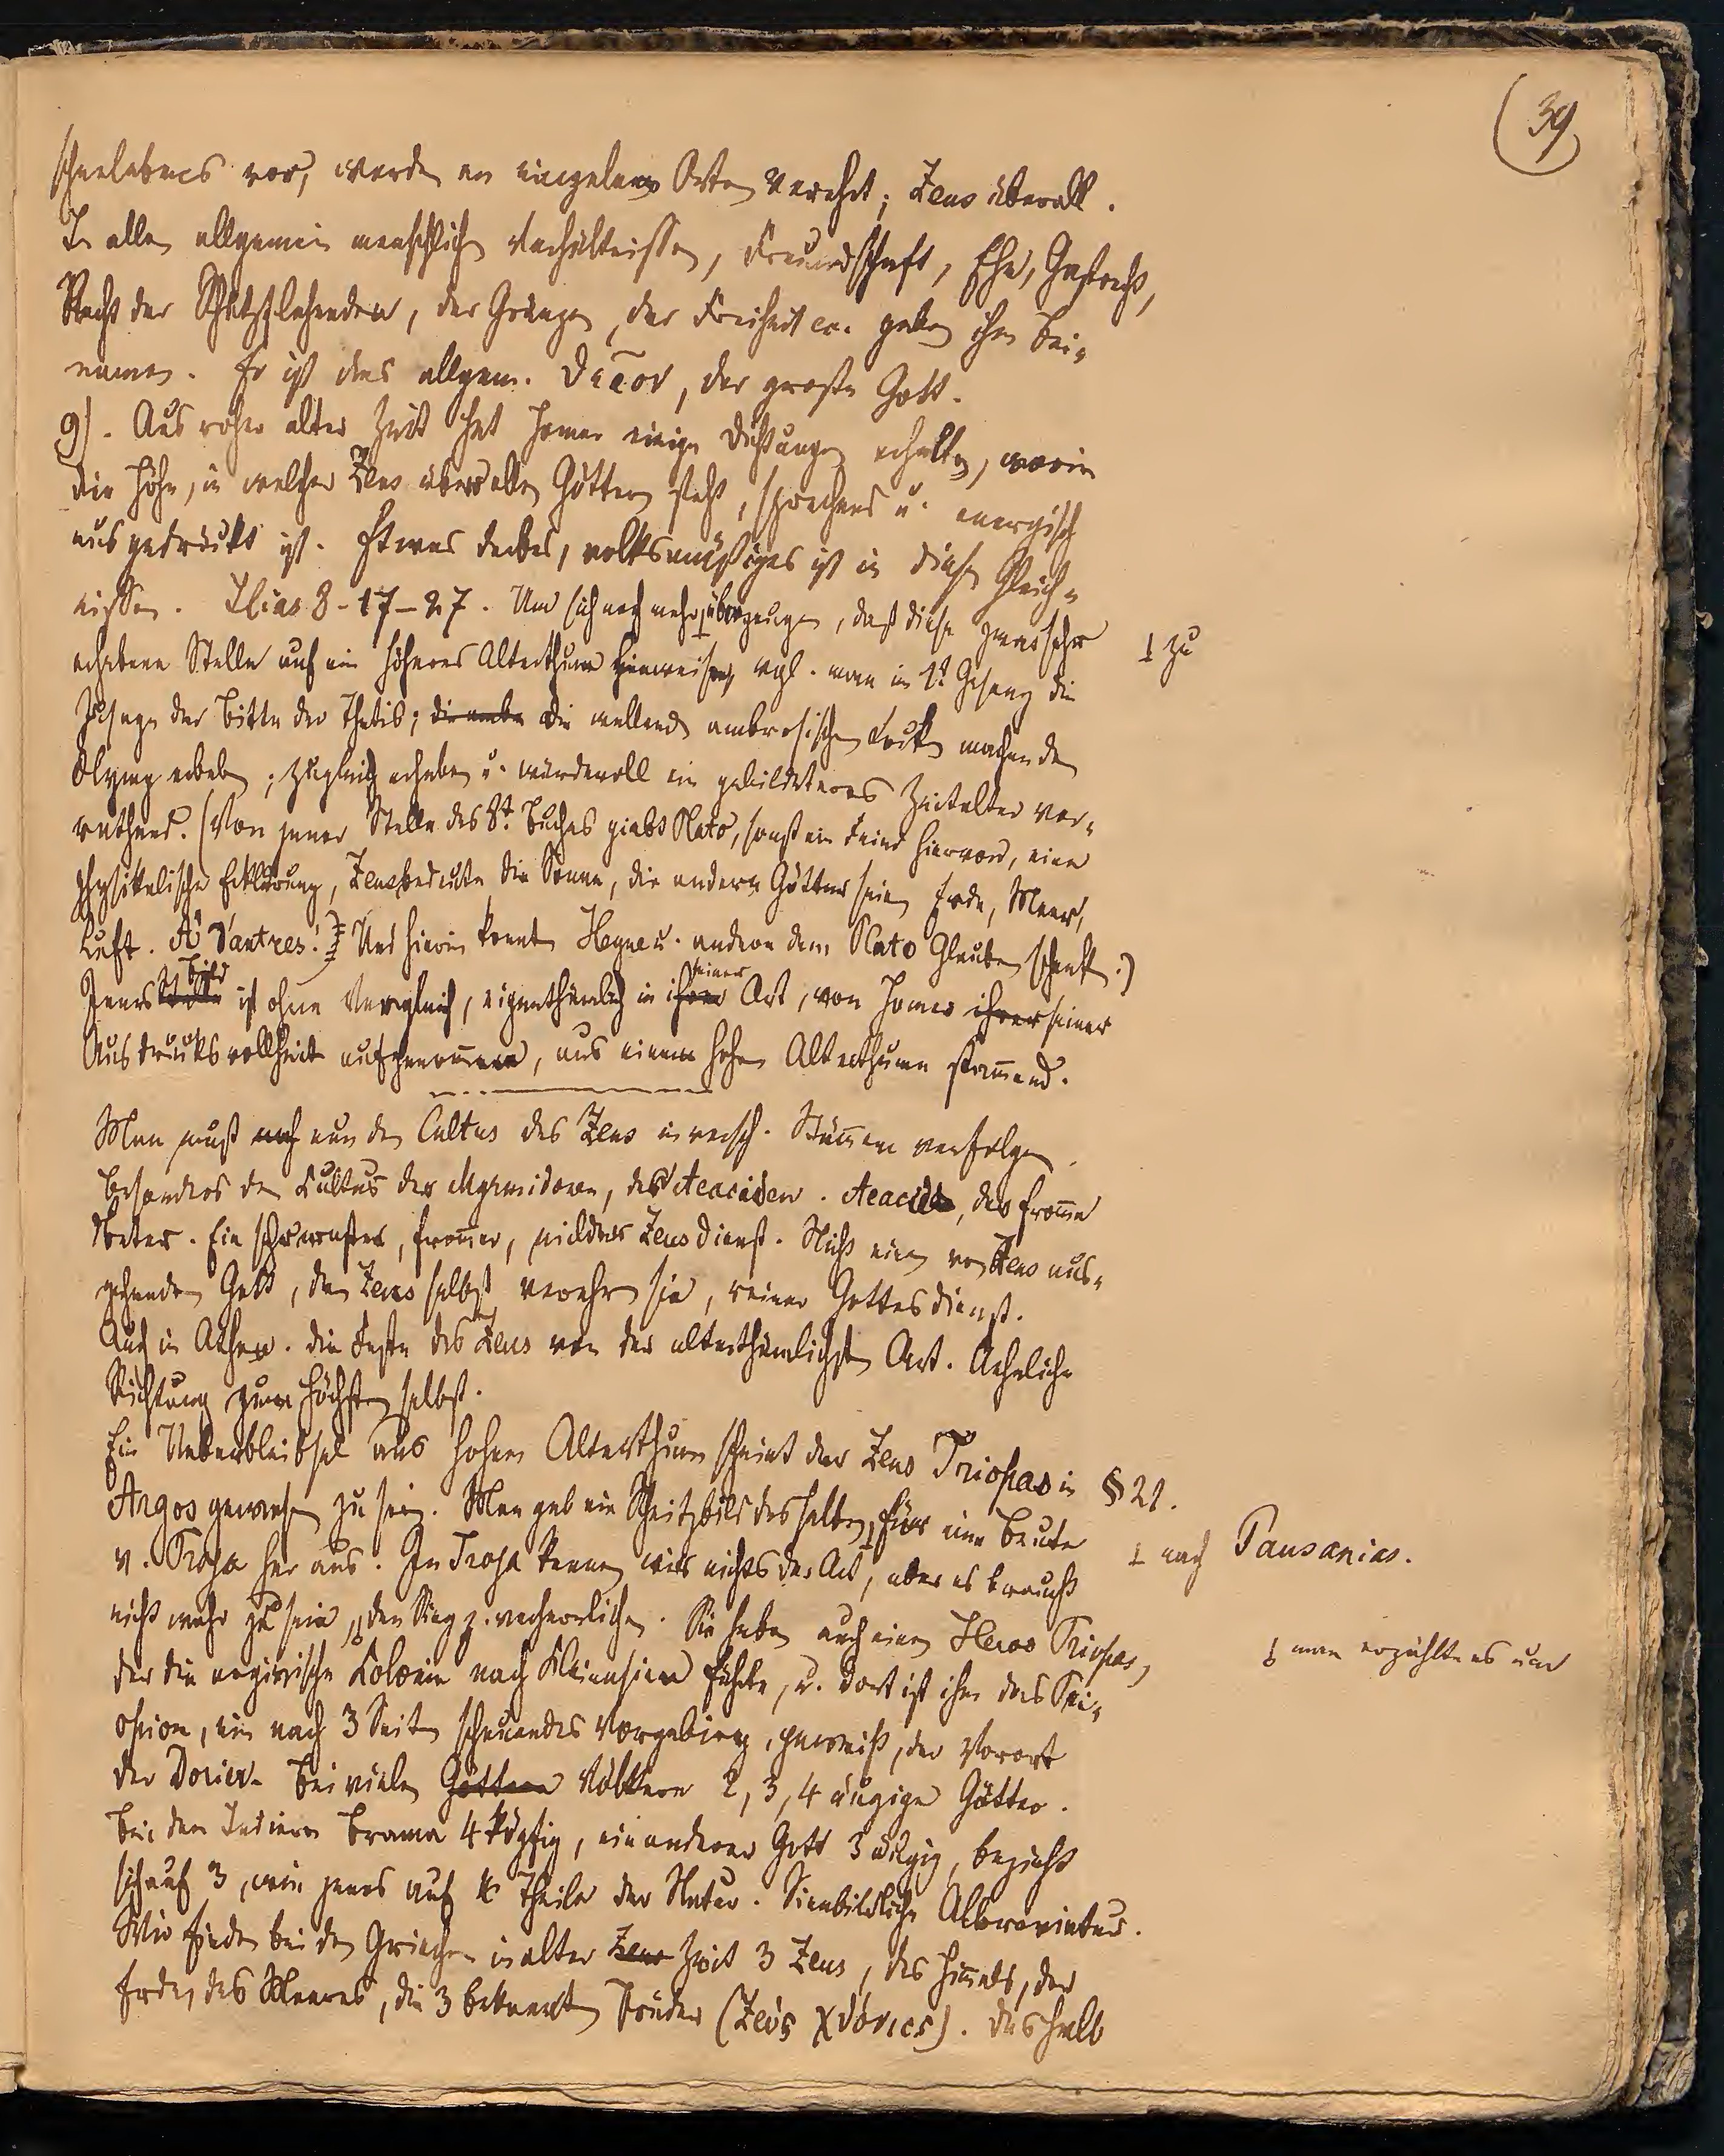 39
schenlebens vor, werden an einzelnen Orten verehrt; Zeus überall.
In allen allgemein menschlichen Verhältnissen, Freundschaft, Ehe, Gastrecht,
Recht der Schutzflehenden, der Gränzen, der Freiheit etc. geben ihm Bei-
namen. Er ist das allgem. θεῖον, der große Gott.
9). Aus roher alter Zeit hat Homer einige Dichtungen erhalten, worin
die Höhe, in welcher Zeus über allen Göttern steht, sprechend u. energisch
ausgedrückt ist. Etwas derbes, volksmäßiges ist in diesen Gleich-
nissen. Ilias 8-17-27. Um sich noch mehr ⊥ überzeugen, daß diese zwar sehr
⊥ zu
erhabene Stelle auf ein höheres Alterthum hinweisen, vgl. man im 1t Gesang die
Zusage der Bitte der Thetis; die wallenden ambrosischen Locken machen den
Olymp erbeben; zugleich erhaben u. würdevoll ein gebildeteres Zeitalter ver-
rathend. (Von jener Stelle des 8t. Buches giebt Plato, sonst ein Feind hiervon, eine
physikalische Erklärung, Zeus bedeute die Sonne, die andern Götter seien Erde, Meer,
Luft. A d'autres! Und hierin konnten Heyne u. andere dem Plato Glauben schenken.)
Jenes Bild ist ohne Vergleich, eigenthümlich in seiner Art, von Homer ihrer seiner
Ausdrucksvollheit aufgenommen, aus einem hohen Alterthum stammend.
Man muß noch nun den Cultus des Zeus in versch. Stämmen verfolgen.
Besonders den Kultus der Myrmidonen, des Aeaciden. Aeacus, der fromme
Beter. Ein sehr ernster, frommer, milder Zeusdienst. Nicht einen von Zeus aus-
gehenden Gott, den Zeus selbst verehren sie, reiner Gottesdienst.
Auch in Athen. die Feste des Zeus von der alterthümlichsten Art. Aehnliche
Richtung zum Höchsten selbst.
Ein Ueberbleibsel aus hohem Alterthum scheint der Zeus Triopas in § 21.
Argos gewesen zu sein. Man gab ein Schnitzbild desselben ⊥ für eine Beute
⊥ nach Pausanias.
v. Troja her aus. In Troja kennen wir nichts der Art, aber es braucht
nicht wahr zu sein, den Sieg z. verherrlichen. Sie haben auch einen Heros Triopas,
man erzählte es um
der die argivische Kolonie nach Kleinasien führte, u. dort ist ihm das Tri-
opion, ein nach 3 Seiten schauendes Vorgebirg, geweiht, der Vorort
der Dorier. Bei vielen Göttern Völkern 2, 3, 4 äugige Götter.
Bei den Indiern Brama 4köpfig, ein anderer Gott 3 äugig, bezieht
sich auf 3, wie jenes auf 4 Theile der Natur. Sinnbildliche Abbreviatur.
Wir finden bei den Griechen in alter Zeus Zeit 3 Zeus, des Himmels, der
Erde, des Meeres, die 3 bekannten Brüder (Ζεύς χθόνιος). Deshalb